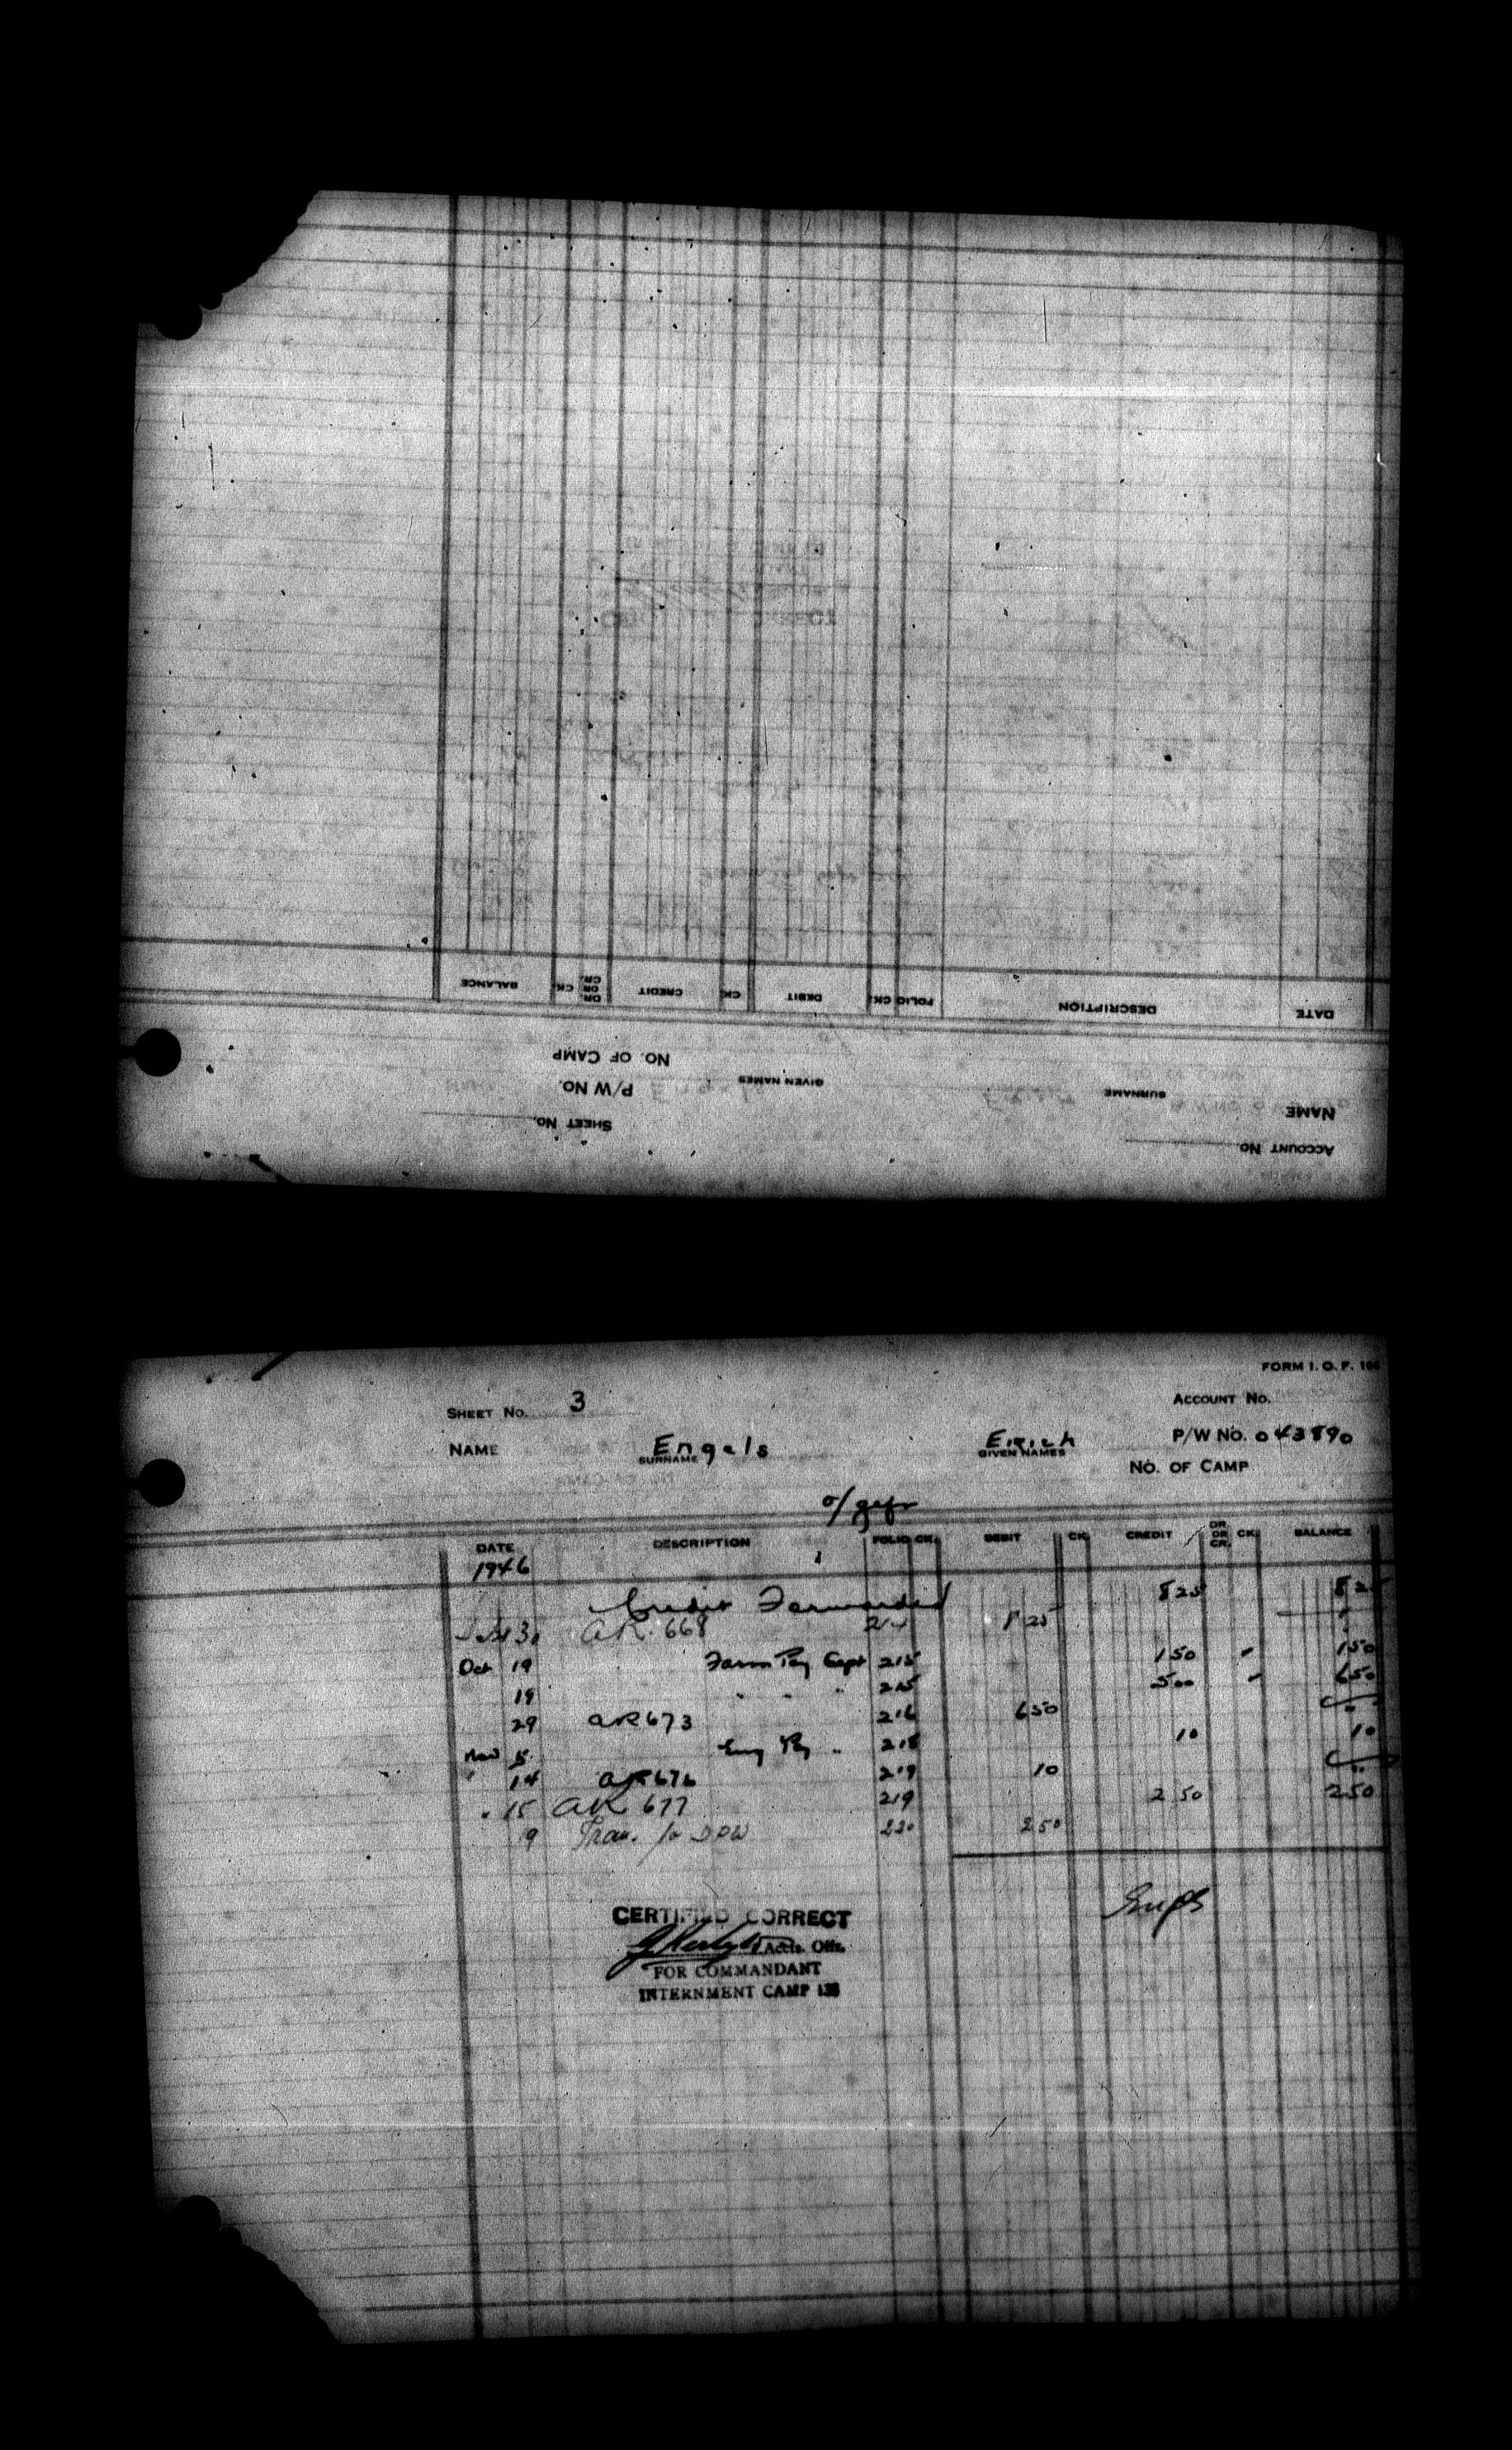 BALANCE CK. DR. OR CR. CREDIT CK. DEBIT FOLIO CK. DESCRIPTION DATE
NO. OF CAMP
GIVEN NAMES
P/W No.
SURNAME
NAME
SHEET No.
ACCOUNT No.
FORM I. O. F. 106
SHEET No. 3 ACCOUNT No.
NAME Engels Erich P/W No. 043890
SURNAME GIVEN NAMES
NO. OF CAMP
o/gefr
DATE DESCRIPTION FOLIO CK. DEBIT CK. CREDIT DR. OR CR. CK. BALANCE
1946
Credit Forwarded 825 825
30 AR 668 825
Oct 19 Farm Pay Sept 215 150 150
19 " " " 215 500 650
29 AR 673 216 650
Nov 5 Pay " 218 10 10
" 14 AR 676 219 10
" 15 AR 677 219 2 50 2 50
9 Tran. to DPW 220 2 50
CERTIFIED CORRECT
Accts. Offr.
FOR COMMANDANT
INTERNMENT CAMP 133